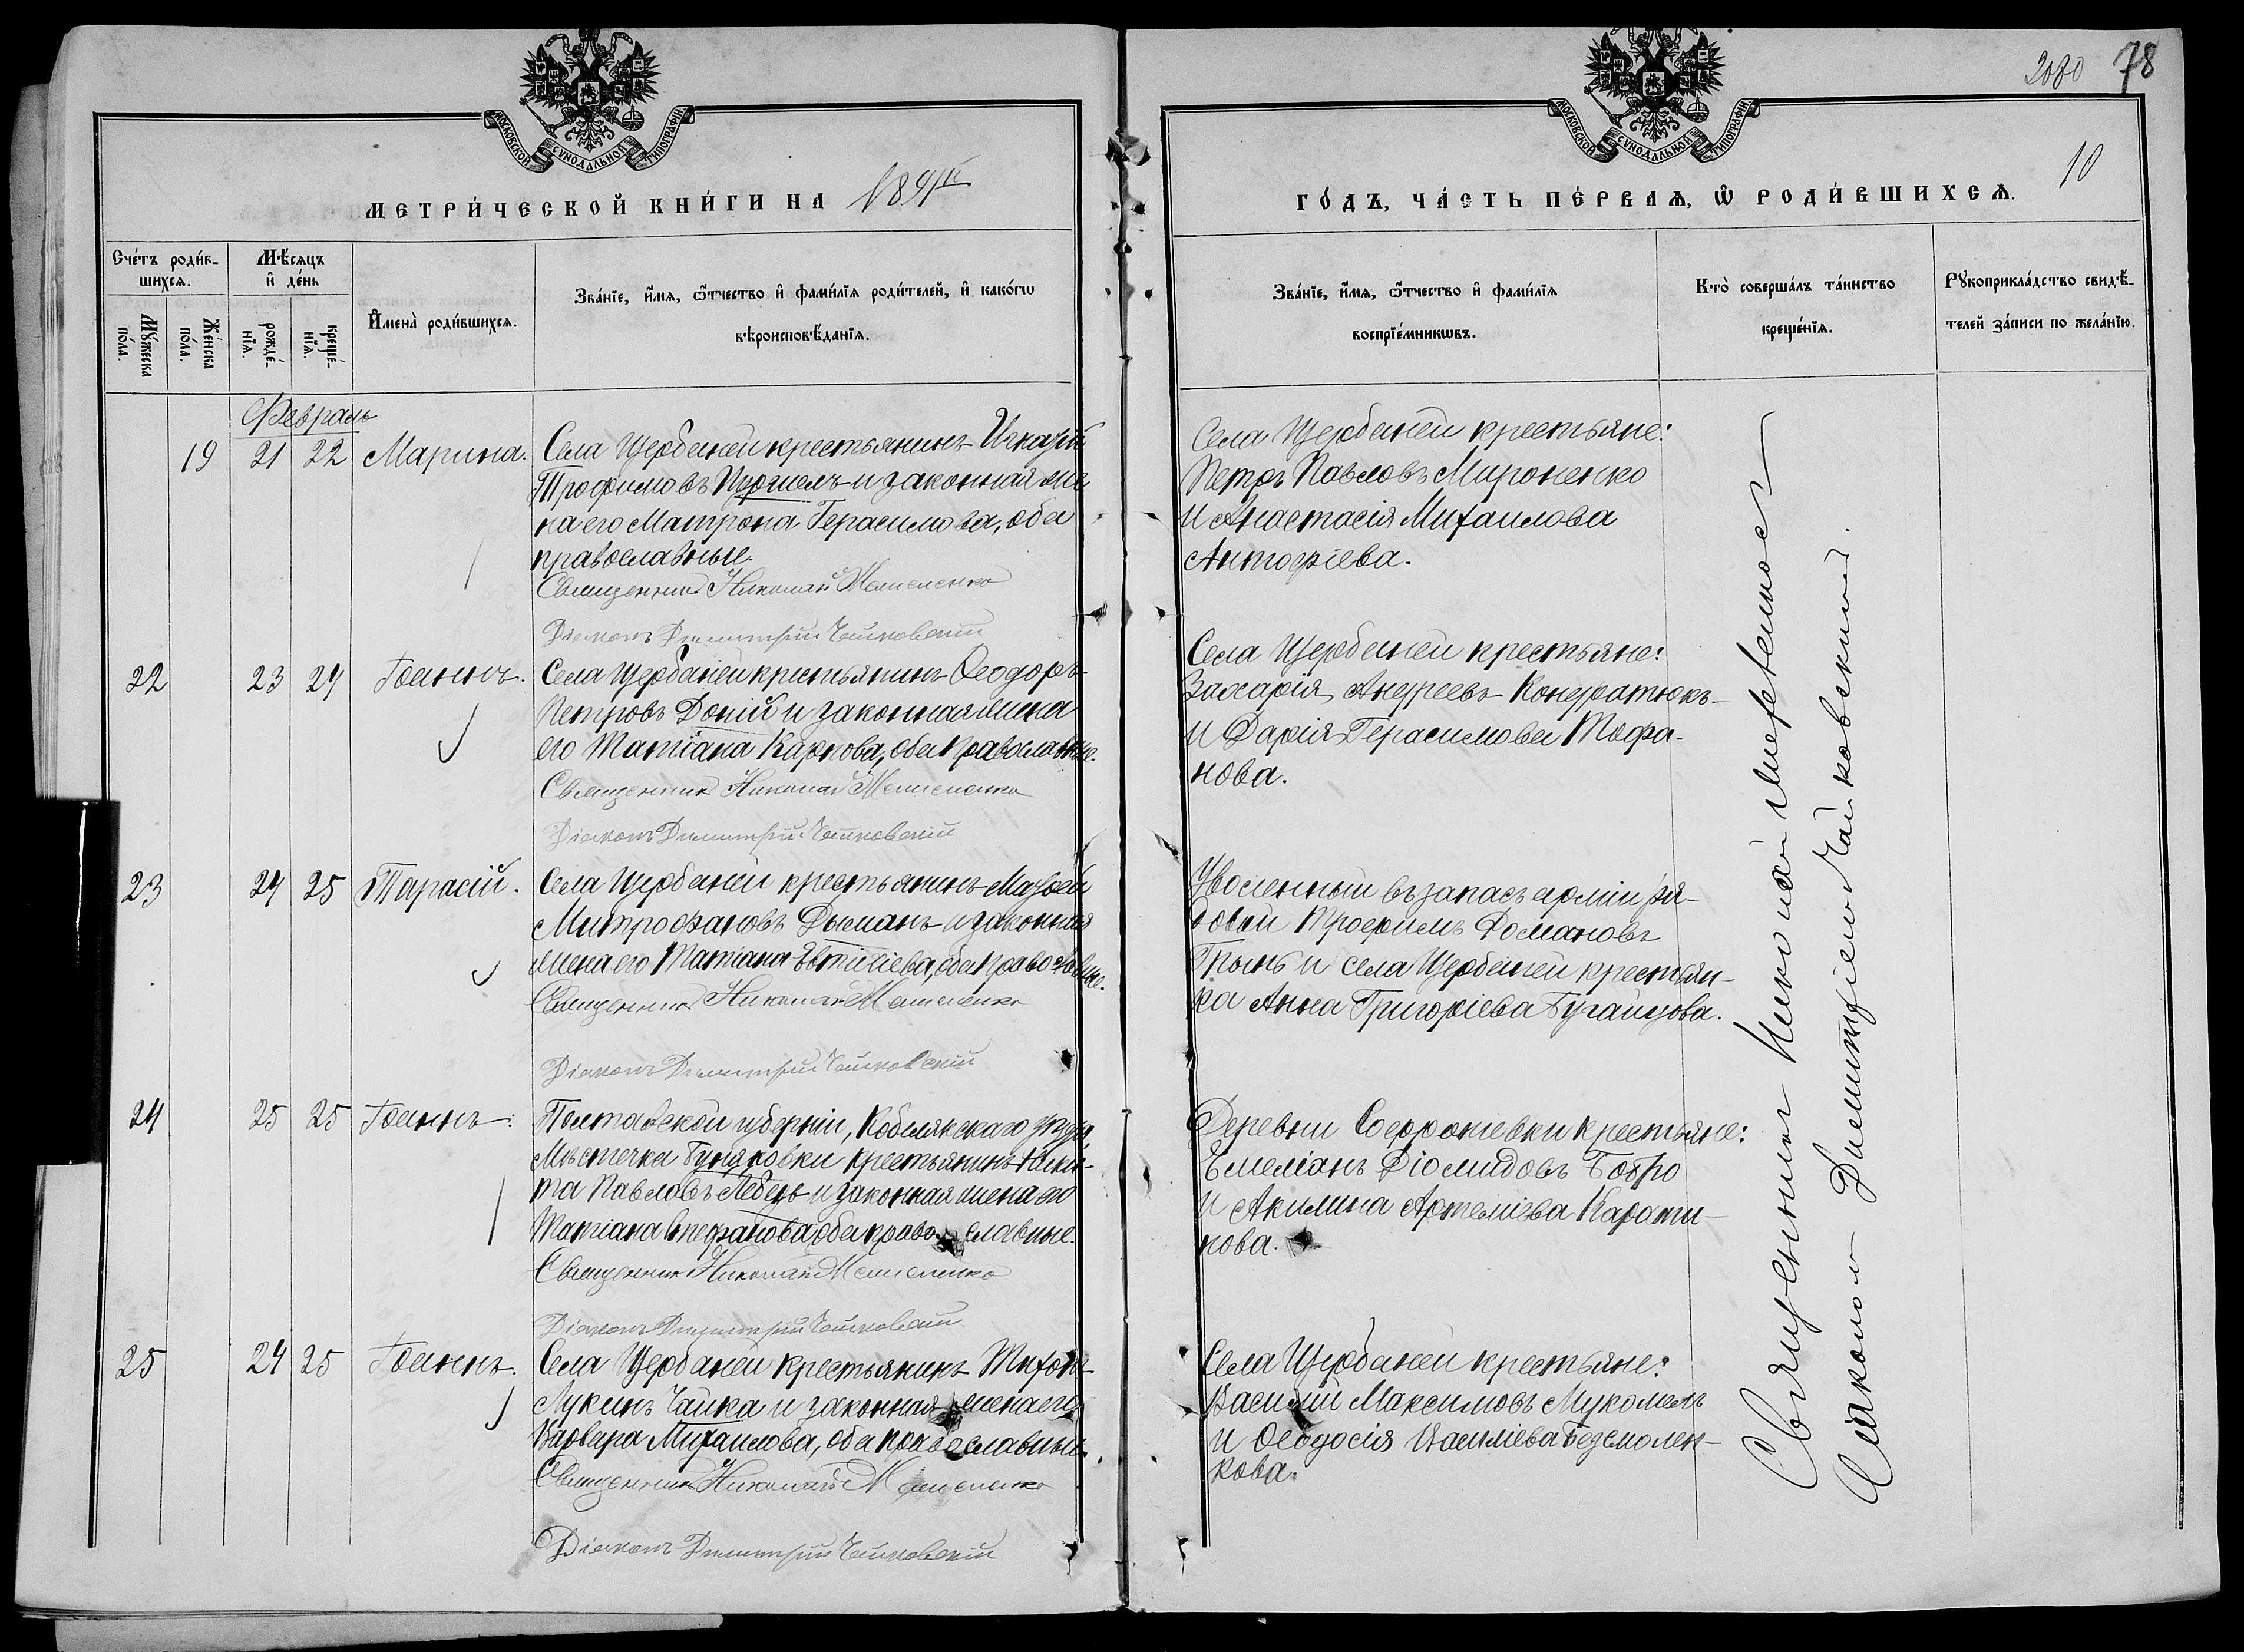 МОСКОВСКОЙ СѴНОДАЛЬНОЙ ТИПОГРАФІИ
МЕТРИ́ЧЕСКОЙ КНИ́ГИ НА 1891й
Сче́тъ роди́вшихсѧ.
Мѣ́сѧцъ и҆ де́нь
Мꙋ́жеска по́ла.
Же́нска по́ла.
рожде́нїѧ.
креще́нїѧ.
И҆мена̀ роди́вшихсѧ.
Зва́нїе, и҆́мѧ, ѻ҆́тчество и҆ фами́лїѧ роди́телей, и҆ како́гѡ
вѣроисповѣ́данїѧ.
Февраль
19 21 22 Марина. Села Щербаней крестьянинъ
Трофимовъ и законная же
на его Матрона Герасимова, оба
православные.
Священникъ Николай
Діаконъ Димитрій Чайковскій
22 23 24 Іоаннъ. Села Щербаней крестьянинъ Ѳеодоръ
Петровъ Доній и законная жена
его Татіана Карпова, оба православные.
Священникъ Николай
Діаконъ Димитрій Чайковскій
23 24 25 Тарасій. Села Щербаней крестьянинъ
Митрофановъ Дыманъ и законная
жена его Татіана Евтихіева, оба православные.
Священникъ Николай
Діаконъ Димитрій Чайковскій
24 25 25 Іоаннъ. Полтавской губерніи, Кобелякскаго уѣзда,
Мѣстечка крестьянинъ
та Павловъ Лебедь и законная жена его
Татіана Стефанова, оба православные.
Священникъ Николай
Діаконъ Димитрій Чайковскій
25 24 25 Іоаннъ. Села Щербаней крестьянинъ Тихонъ
Лукинъ Чайка и законная жена его
Варвара Михаилова, оба православные.
Священникъ Николай
Діаконъ Димитрій Чайковскій
2080 78
МОСКОВСКОЙ СѴНОДАЛЬНОЙ ТИПОГРАФІИ
10
ГО́ДЪ, ЧА́СТЬ ПЕ́РВАѦ, Ѡ҆ РОДИ́ВШИХСѦ.
Зва́нїе, и҆́мѧ, ѻ҆́тчество и҆ фами́лїѧ
воспрїе́мникѡвъ.
Кто̀ соверша́лъ та́инство
креще́нїѧ.
Рꙋкоприкла́дство свидѣ́телей за́писи по жела́нїю.
Села Щербаней крестьяне:
Петръ Павловъ Мироненко
и Анастасія Михаилова
Антофіева.
Села Щербаней крестьяне:
Захарія Андреевъ Кондратюкъ
и Дарія Герасимова Тофа-
нова.
Уволенный въ запасъ арміи ря-
довой Трофимъ Домановъ
Грынь и села Щербаней крестьян-
ка Анна Григоріева
Деревни Софроніевки крестьяне:
Емеліанъ Діомидовъ Бобро
и Акилина Артеміева
Села Щербаней крестьяне:
Василій Максимовъ Мукомелъ
и Ѳеодосія Василіева Безсмолен-
кова.
Священникъ Николай
Діакономъ Димитріемъ Чайковскимъ.